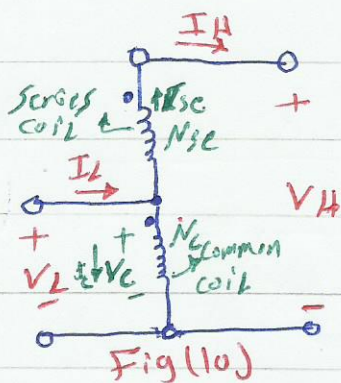 IH
Series
coil
Ise
Nse
+
IL
VH
+
+
Nc
common
coil
VL
Vc
-
-
-
Fig(10)